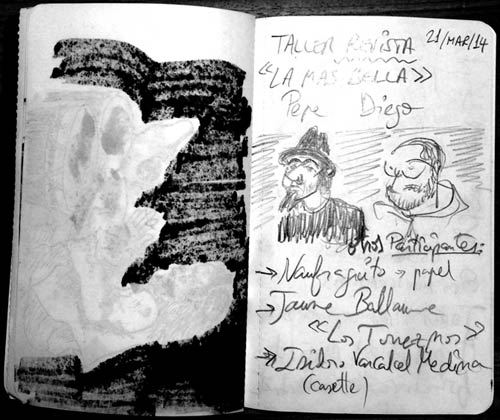 TALLER REVISTA 21/MAR/14
«LA MAS BELLA»
Pepe Diego
otros Participantes:
→ Naufraguito → papel
→ Jaume
«Los Torreznos»
→ Isidoro Valcarcel Medina
(casette)